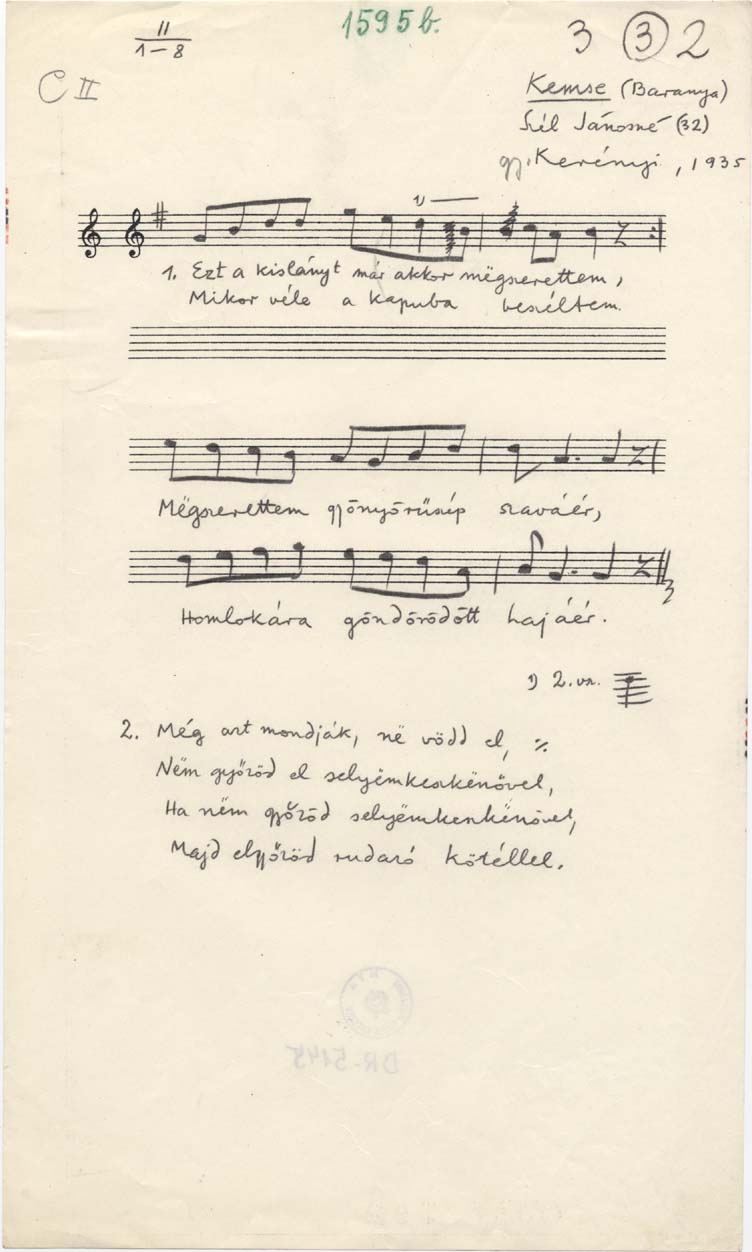 11
1–8
1595b.
3 (3) 2
C II
Kemse (Baranya)
Szél Jánosné (32)
gy. Kerényi, 1935
1)
1. Ezt a kislányt már akkor mëgszerettem,
Mikor véle a kapuba beszéltem.
Mëgszerettem gyönyörüszép szaváér,
Homlokára göndörödött hajáér.
1) 2. vsz.
2. Még azt mondják, në vödd el, ٪
Nëm győzöd el selyëmkeszkënővel,
Ha nëm győzöd selyëmkeszkënővel,
Majd elgyőzöd rudazó kötéllel.
DR-5145